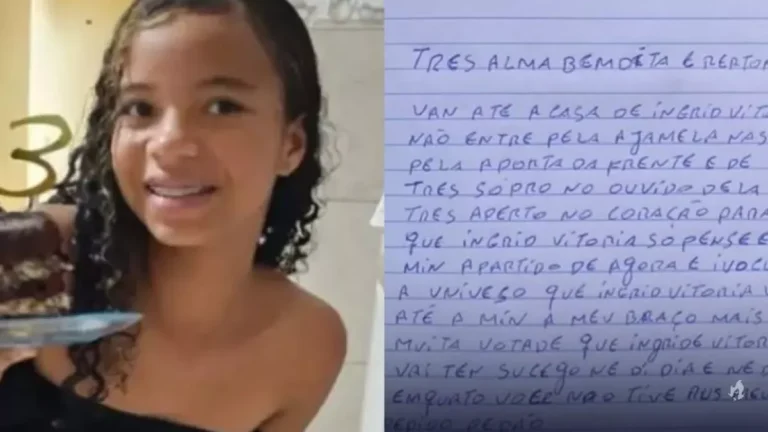 3
TRES ALMA BEMDITA E
VAN ATÉ A CASA DE INGRID
NÃO ENTRE PELA AJAMELA NAS
PELA APORTA DA FRENTE E DE
TRES SOPRO NO OUVIDO DELA
TRES APERTO NO CORAÇÃO PARA
QUE INGRID VITORIA SO PENSE E
MIN APARTIDO DE AGORA E
A UNIVESO QUE INGRID VITORIA
ATÉ A MIN A MEU BRAÇO MAIS
MUITA VOTADE QUE INGRIDE
VAI TEN SUCEGO NE DI DIA E NE
EMQUATO VOCE NÃO TIVE
PEDIDO